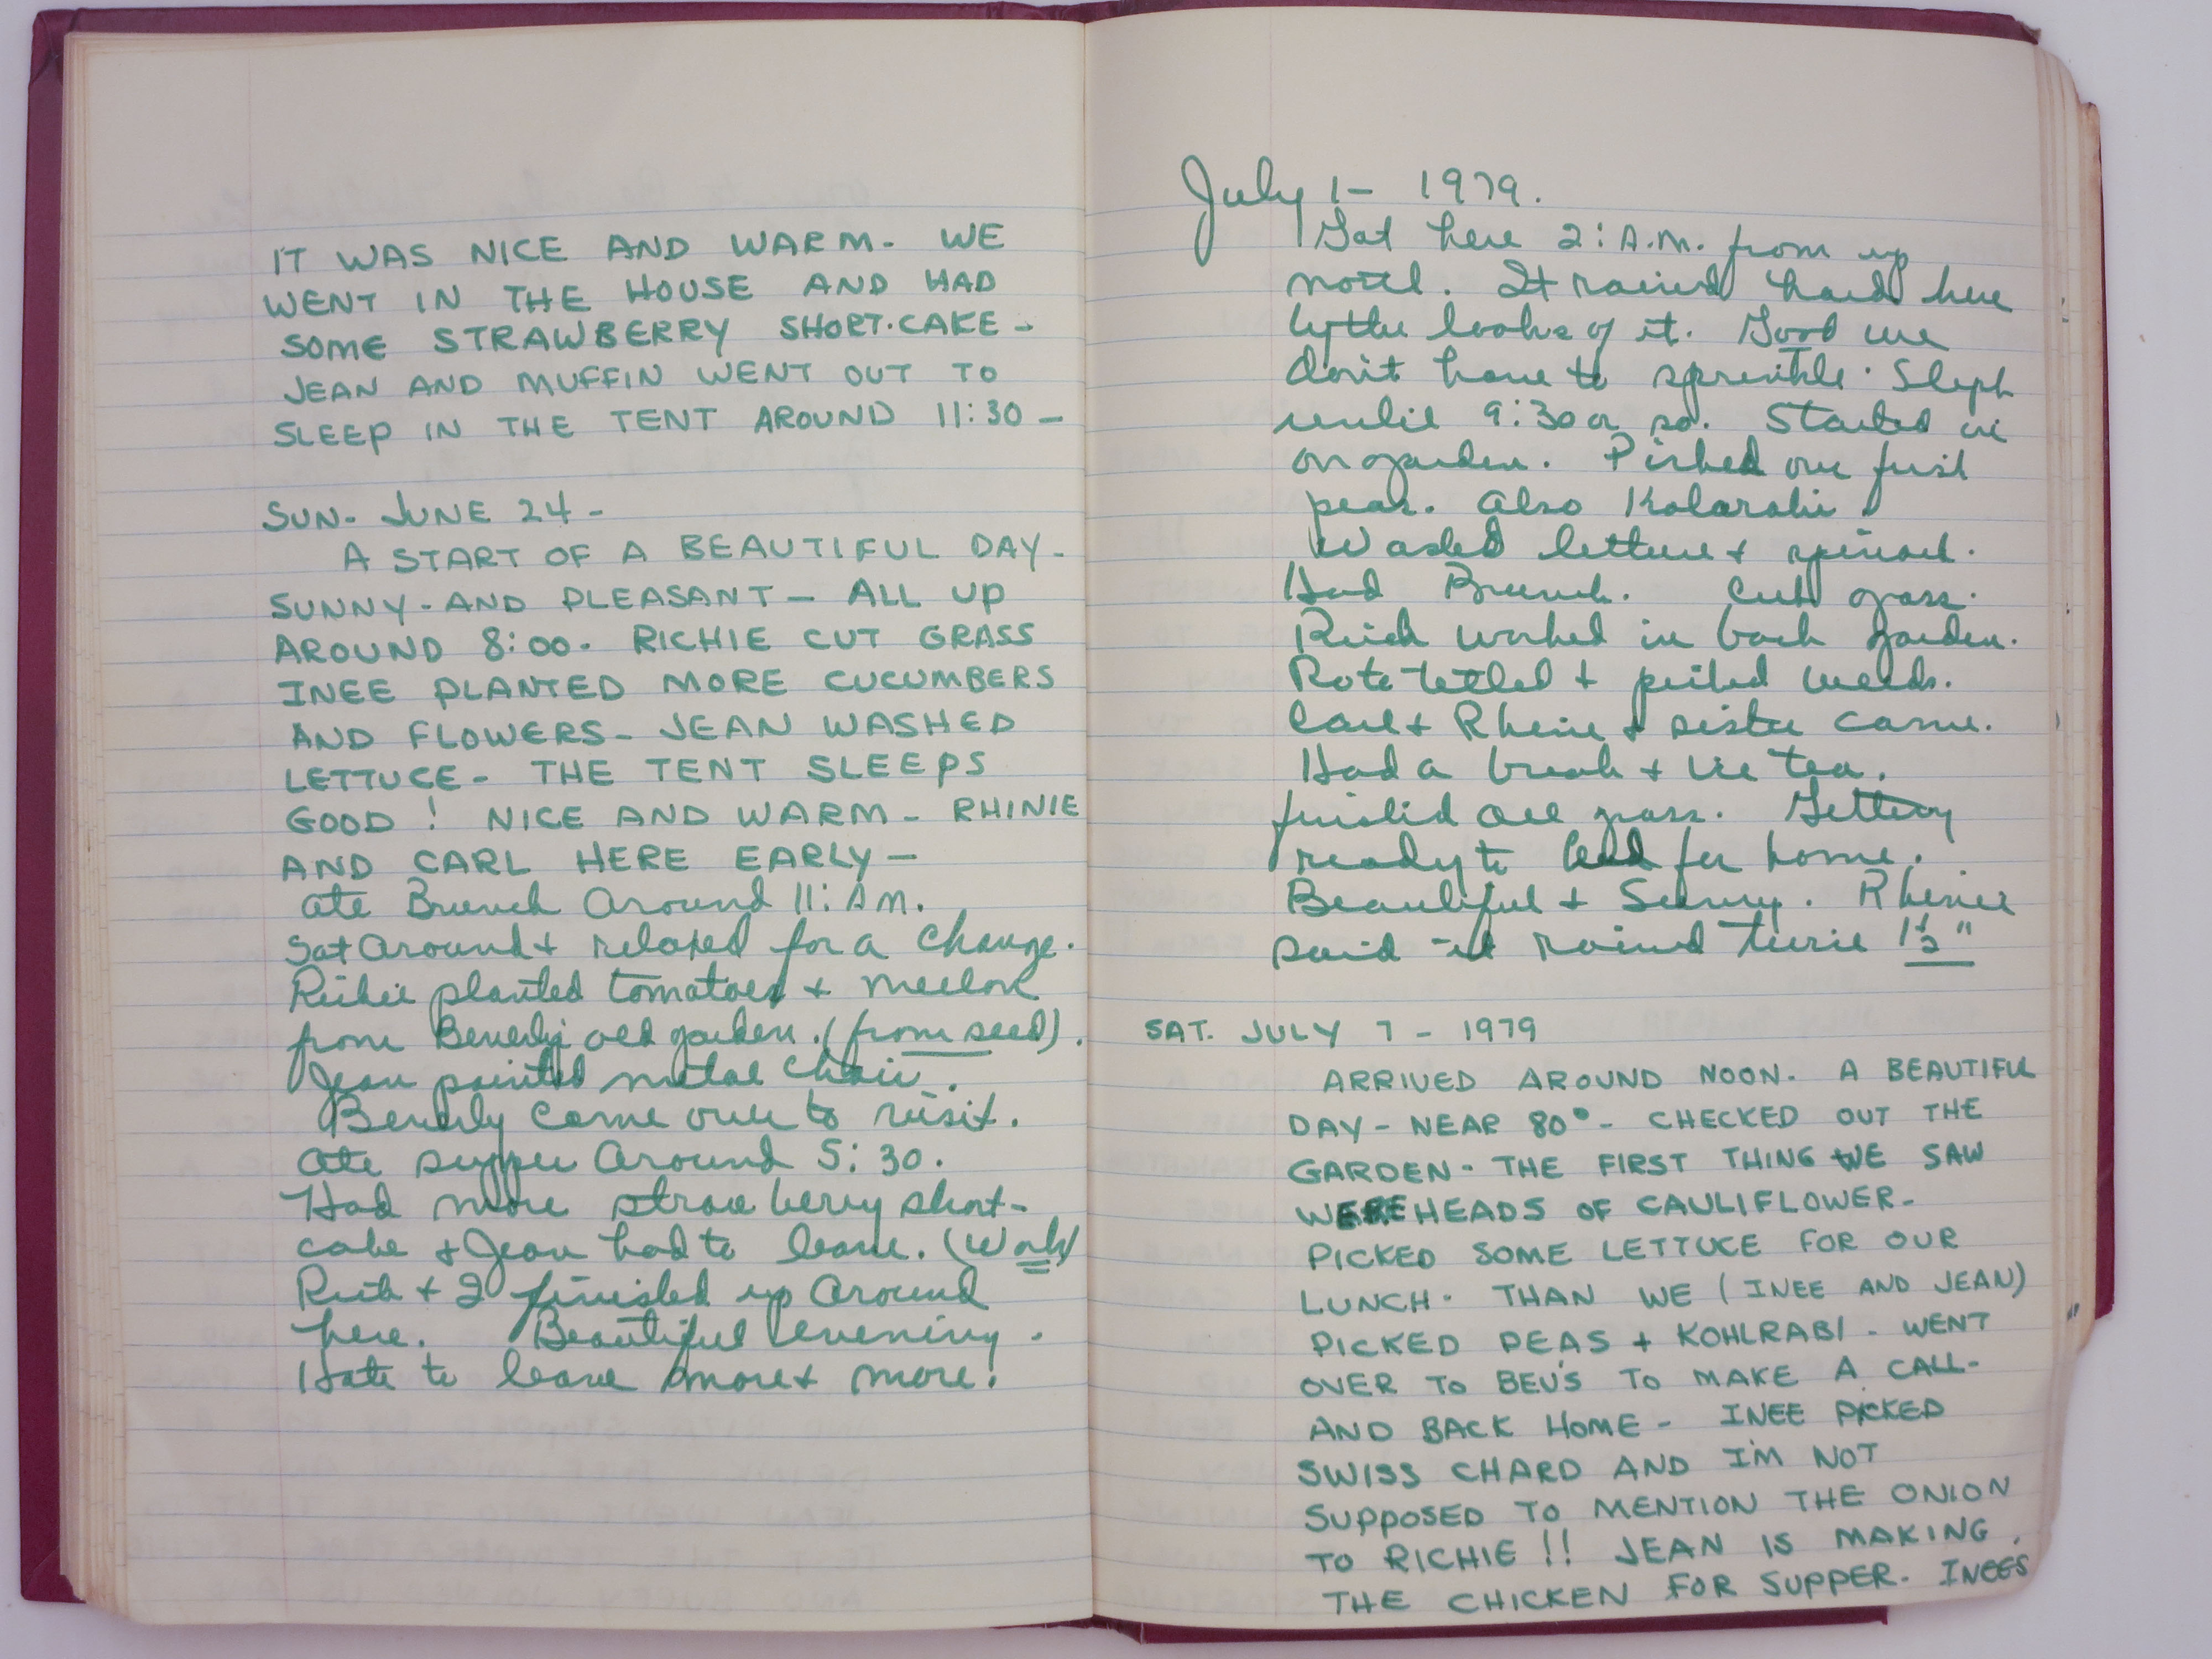 IT WAS NICE AND WARM- WE
WENT IN THE HOUSE AND HAD
SOME STRAWBERRY SHORT.CAKE-
JEAN AND MUFFIN WENT OUT TO
SLEEP IN THE TENT AROUND 11:30-
SUN- JUNE 24-
A START OF A BEAUTIFUL DAY-
SUNNY-AND PLEASANT- ALL UP
AROUND 8:00- RICHIE CUT GRASS
INEE PLANTED MORE CUCUMBERS
AND FLOWERS- JEAN WASHED
LETTUCE- THE TENT SLEEPS
GOOD! NICE AND WARM- RHINIE
AND CARL HERE EARLY-
ate Brunch Around 11: A.M.
Sat Around + relaxed for a change.
Richie planted tomatoes + meelon
from Beverly old garden. (from seed).
Jean painted metal chair.
Beverly came over to visit.
ate supper Around 5:30.
Had more straw berry short-
cake + Jean had to leave. (Work)
Rich + I finished up Around
here. Beautiful evening.
Hate to leave more + more!
July 1- 1979.
Got here 2: A.M. from up
north. It rained hard here
by the looks of it. Good we
don't have to sprinkle. Sleph
until 9:30 or so. Started in
on garden. Picked our first
peas. Also Kolarabi.
Washed lettuce + spinach.
Had Brunch. Cut grass.
Rich worked in back garden.
Roto tilled + pulled weeds.
Carl + Rhinie + sister came.
Had a break + ice tea.
finished all grass. Getting
ready to head for home.
Beautiful + Sunny. Rhinie
said it rained twice 1½"
SAT. JULY 7 - 1979
ARRIVED AROUND NOON- A BEAUTIFUL
DAY- NEAR 80°- CHECKED OUT THE
GARDEN- THE FIRST THING WE SAW
WERE HEADS OF CAULIFLOWER-
PICKED SOME LETTUCE FOR OUR
LUNCH- THAN WE (INEE AND JEAN)
PICKED PEAS + KOHLRABI- WENT
OVER TO BEV'S TO MAKE A CALL-
AND BACK HOME- INEE PICKED
SWISS CHARD AND I'M NOT
SUPPOSED TO MENTION THE ONION
TO RICHIE!! JEAN IS MAKING
THE CHICKEN FOR SUPPER- INEE'S